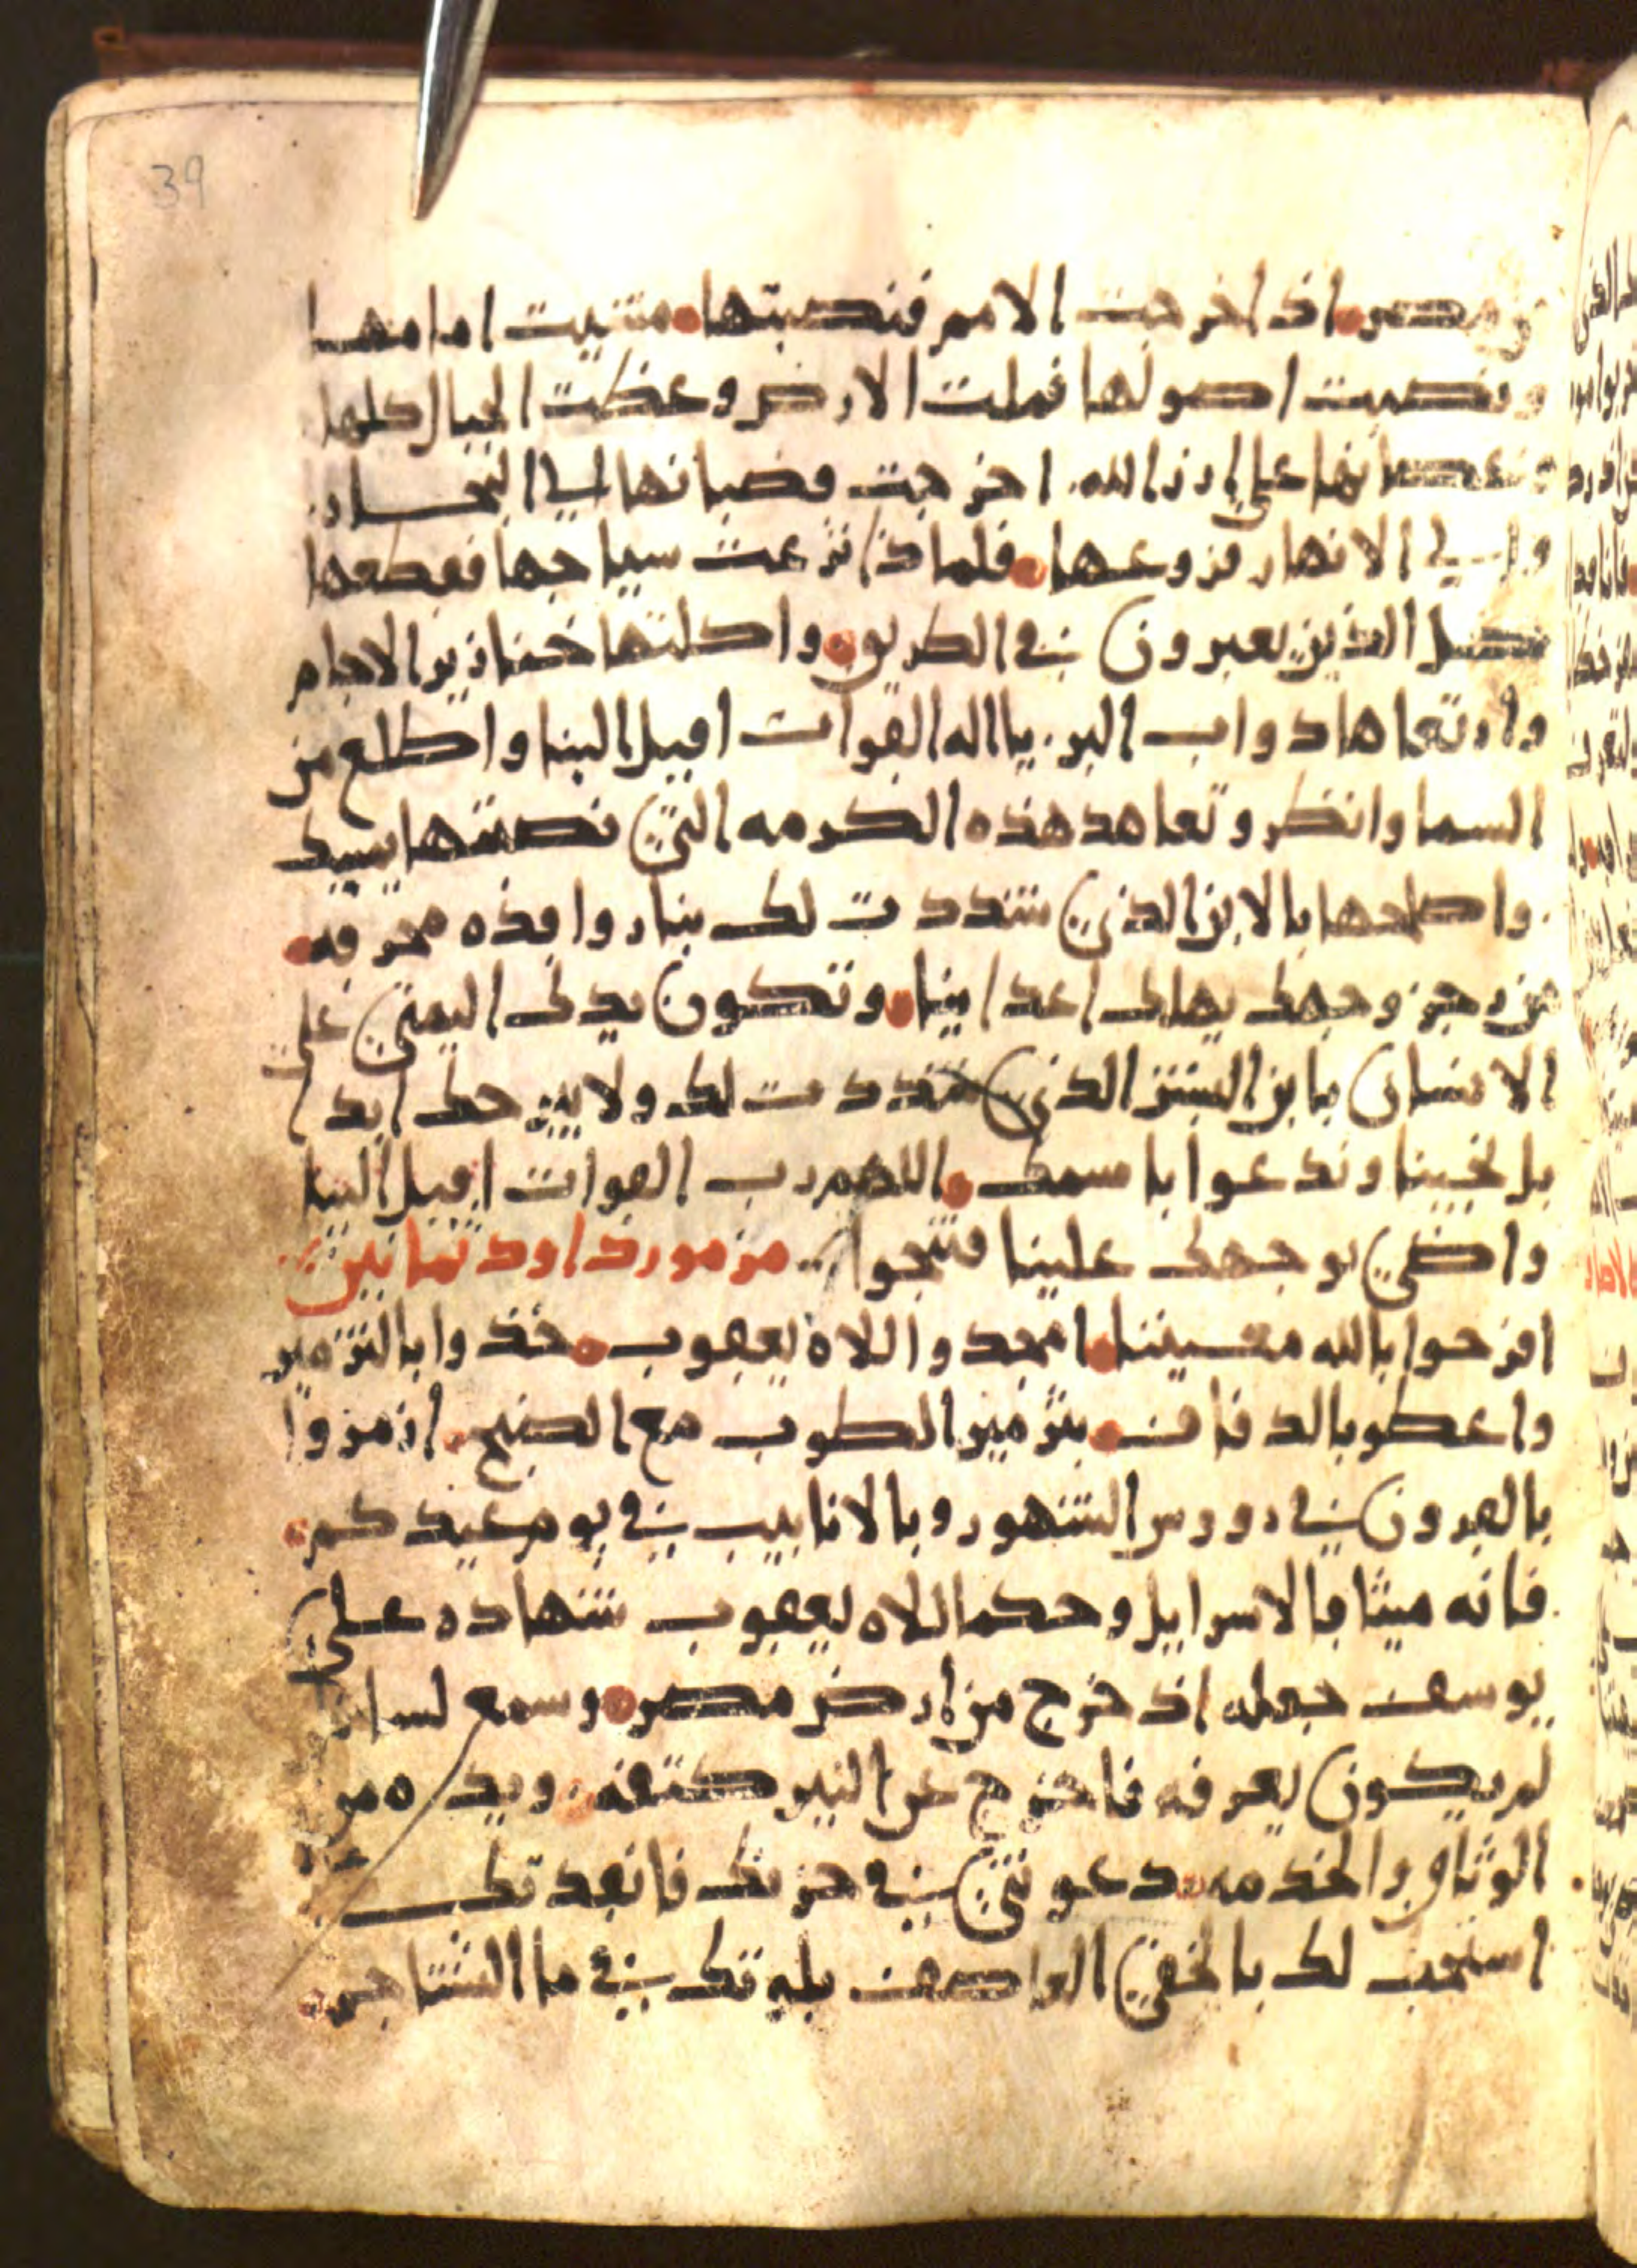 39
من مصر اذ اخرجت الامم فنصبتها مشيت امامها
ونصبت اصولها فملت الارض وغطت الجبال كلها
على ارز الله اخرجت قضبانها الى البحار
والى الانهار فروعها فلماذا نزعت سياجها فقطعها
الذين يعبرون في الطريق واكلتها خنازير الاجام
وارتعاها دواب البر يا اله القوات اقبل الينا واطلع من
السما وانظر وتعاهد هذه الكرمه التي نصبتها بيدك
واصلحها بالابن الذي شددت لك بنار واقذه محرقه
من زجر وجهك يهلك اعداينا وتكون يدك اليمني علي
الانسان بابن البشر الذي شددت لك ولا نبرحك ابدا
بل نحيينا وندعوا باسمك اللهم رب القوات اقبل الينا
واضي بوجهك علينا فننجوا مزمور داود ثمانين
افرحوا بالله معيننا امجدوا اللاه يعقوب خذوا بالتزمير
واعطو بالدفاف بتزمير الطرب مع الصنج ازمروا
بالقرون في رووس الشهور وبالانابيب في يوم عيدكم
فانه ميثاقا لاسرايل وحكما للاه يعقوب شهاده على
يوسف جعله اذ خرج من ارض مصر وسمع لسانا
لم يكون يعرفه فاخرج عن النير كتفه ويده من
الوثاق والخدمه دعوتني في حزنك فانقذتك
استجبت لك بالخفي العاصف بليتك في ما الشتاجر